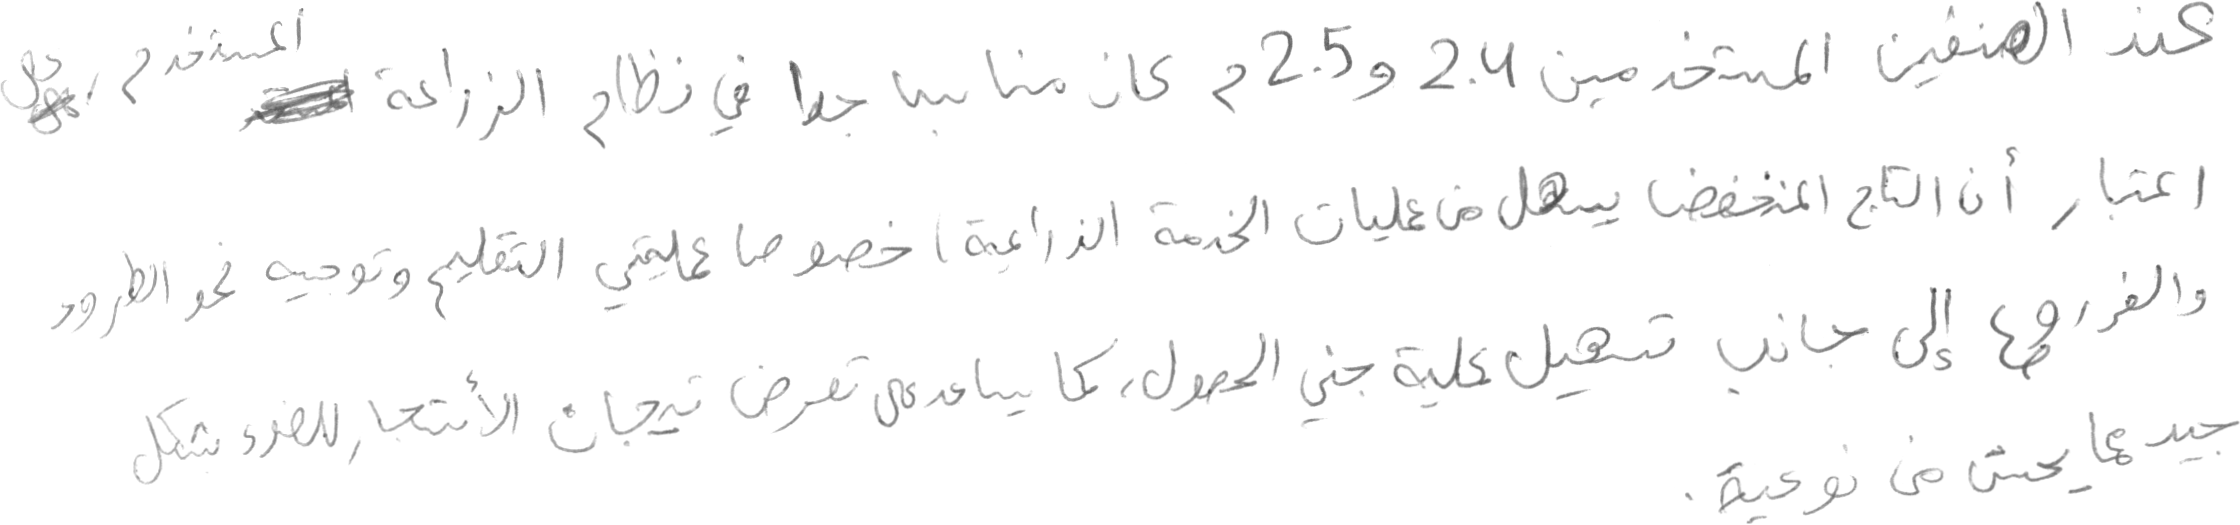 عند الصنفين المستخدمين 2.4 و 2.5 م كان مناسبا جدا في نظام الزراعة المستخدم، على
اعتبار أن التاج المنخفضا يسهل من عمليات الخدمة الزراعية، خصوصا عمليتي التقليم وتوجيه نحو الطرود
والفراوع إلى جانب تسهيل عملية جني المحصول، كما يساعد على تعرض تيجان الأشجار للضوء بشكل
جيد مما يحسن من نوعية.